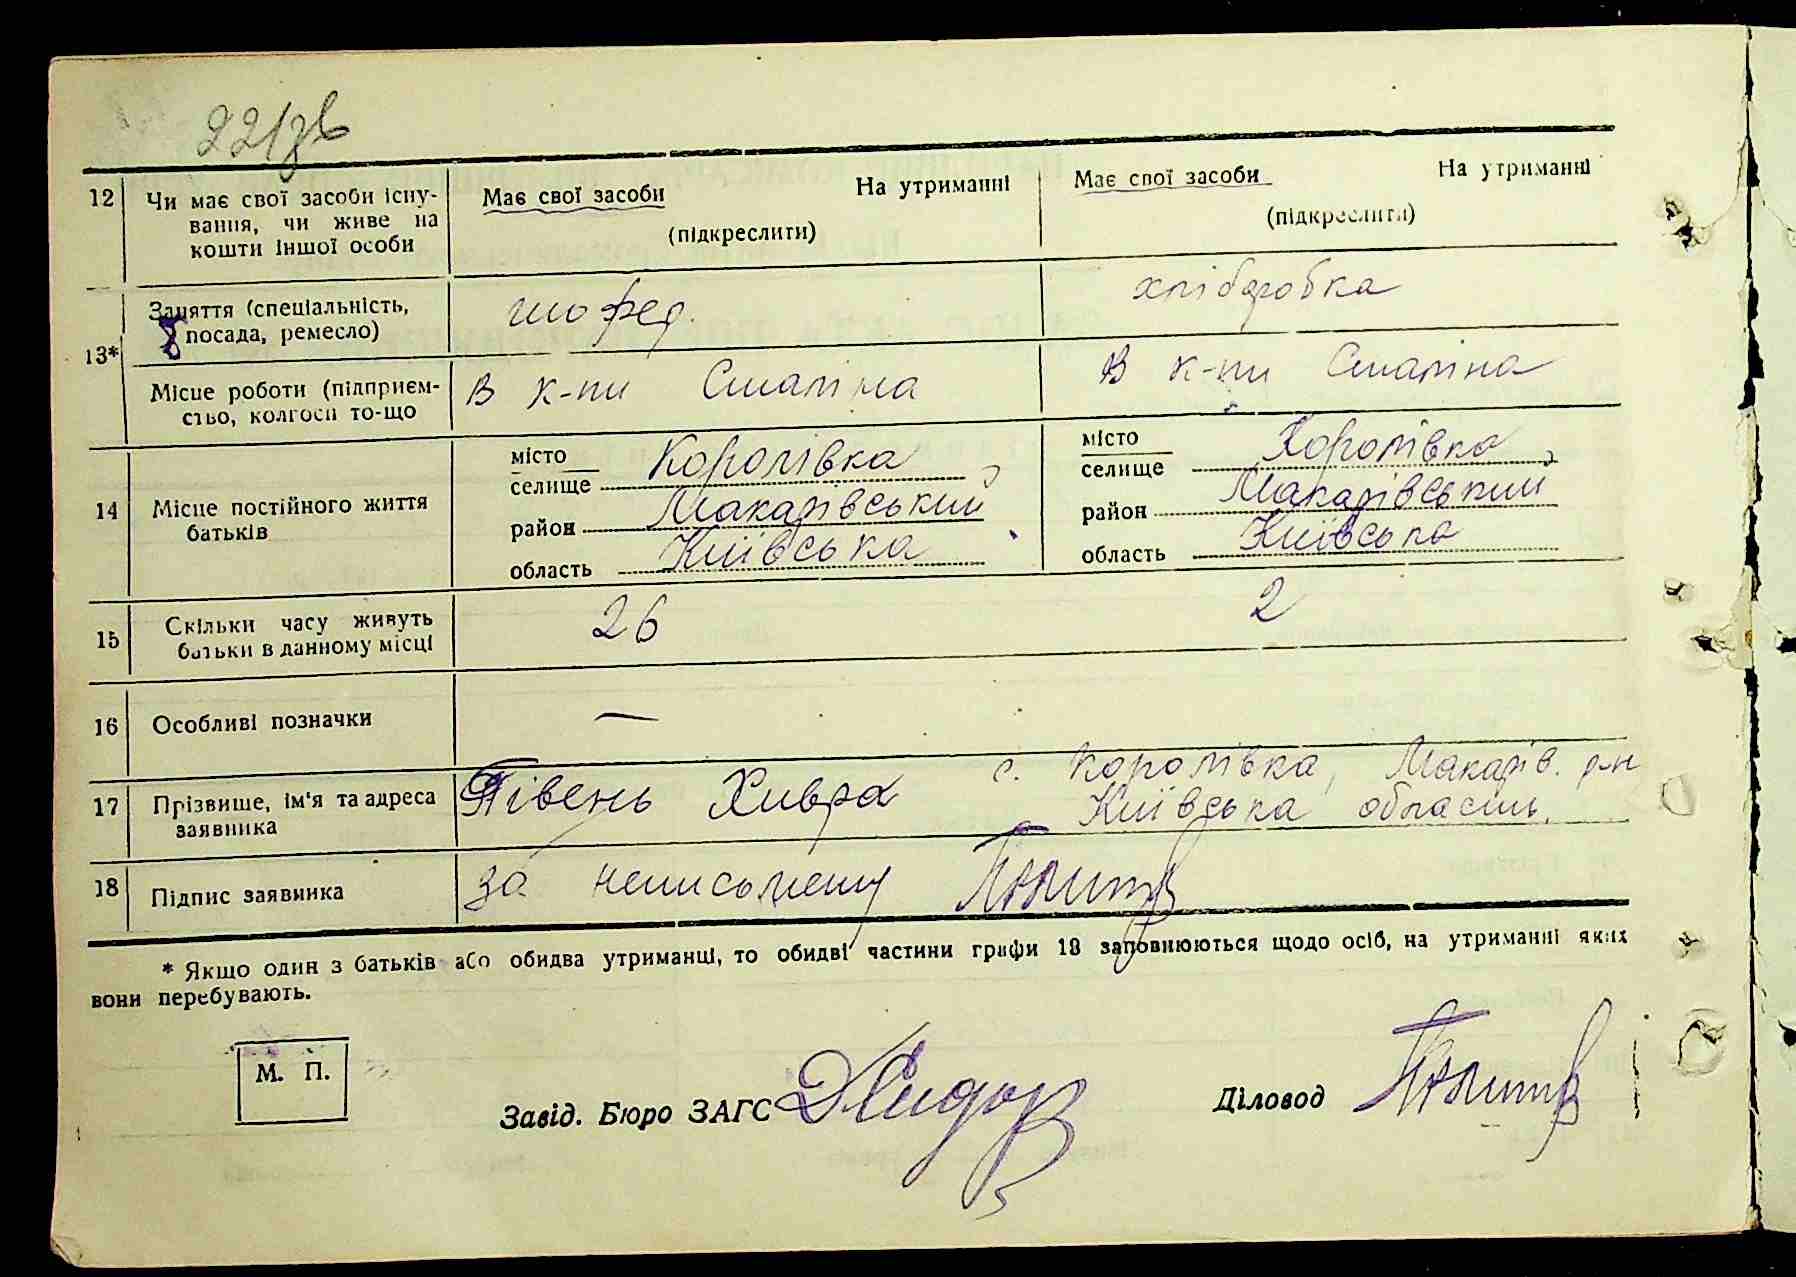 221зв
12 Чи має свої засоби існу-
вання, чи живе на
кошти іншої особи
Має свої засоби На утриманні
(підкреслити)
Має свої засоби На утриманні
(підкреслити)
13* Заняття (спеціальність,
посада, ремесло)
шофер.
хліборобка
Місце роботи (підприєм-
ство, колгосп то-що
В к-пи Сталіна
В к-пи Сталіна
14 Місце постійного життя
батьків
місто
селище Королівка,
район Макарівський
область Київська
місто
селище Королівка,
район Макарівський
область Київська
15 Скільки часу живуть
батьки в данному місці
26
2
16 Особливі позначки
—
17 Прізвище, ім'я та адреса
заявника
Півень Хивра с. Королівка, Макарів. р-н
Київська область.
18 Підпис заявника
за неписьмену
* Якщо один з батьків або обидва утриманці, то обидві частини графи 13 заповнюються щодо осіб, на утриманні яких
вони перебувають.
М. П.
Завід. Бюро ЗАГС
Діловод